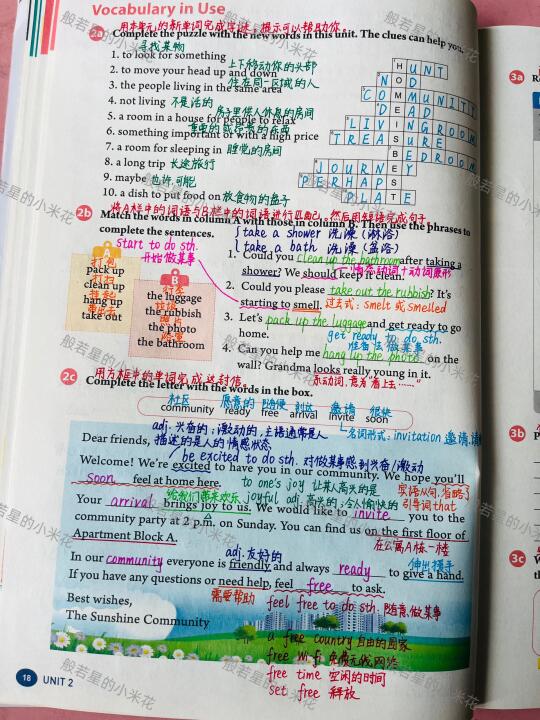 Vocabulary in Use
用本单元的新单词完成字谜,提示可以帮助你
2a Complete the puzzle with the new words in this unit. The clues can help you.
寻找某物
1. to look for something
上下移动你的头部
2. to move your head up and down
住在同一区域的人
3. the people living in the same area
4. not living 不是活的
房子里供人休息的房间
5. a room in a house for people to relax
重要的或昂贵的东西
6. something important or with a high price
7. a room for sleeping in 睡觉的房间
8. a long trip 长途旅行
9. maybe 也许,可能
10. a dish to put food on 放食物的盘子
HUNT
NOD
COMMUNITY
DEAD
LIVINGROOM
TREASURE
BEDROOM
JOURNEY
PERHAPS
PLATE
将A栏中的词语与B栏中的词语进行匹配,然后用短语完成句子.
2b Match the words in column A with those in column B. Then use the phrases to
complete the sentences.
take a shower 洗澡(淋浴)
take a bath 洗澡(盆浴)
start to do sth.
开始做某事
A
打包
pack up
打扫
clean up
挂起
hang up
take out
B
行李
the luggage
垃圾
the rubbish
照片
the photo
浴室
the bathroom
1. Could you clean up the bathroom after taking a
shower? We should keep it clean.
情态动词+动词原形
2. Could you please take out the rubbish? It's
starting to smell. 过去式: smelt 或 smelled
3. Let's pack up the luggage and get ready to go
home. get ready to do sth.
准备去做某事
4. Can you help me hang up the photo on the
wall? Grandma looks really young in it.
系动词,意为"看上去……"
用方框中的单词完成这封信.
2c Complete the letter with the words in the box.
社区 愿意的 随便 到达 邀请 很快
community ready free arrival invite soon
名词形式: invitation 邀请,请
adj. 兴奋的;激动的,主语通常是人
Dear friends, 描述的是人的情感状态
be excited to do sth. 对做某事感到兴奋/激动
Welcome! We're excited to have you in our community. We hope you'll
soon feel at home here. to one's joy 让某人高兴的是
宾语从句,省略了
引导词that
给我们带来欢乐 joyful adj. 高兴的;令人愉快的
Your arrival brings joy to us. We would like to invite you to the
community party at 2 p.m. on Sunday. You can find us on the first floor of
Apartment Block A.
在公寓A栋一楼
adj. 友好的
伸出援手
In our community everyone is friendly and always ready to give a hand.
If you have any questions or need help, feel free to ask.
需要帮助 feel free to do sth. 随意做某事
Best wishes,
The Sunshine Community
a free country 自由的国家
free Wi-fi 免费无线网络
free time 空闲的时间
set free 释放
18 UNIT 2
3a
3b
3c
般若星的小米花